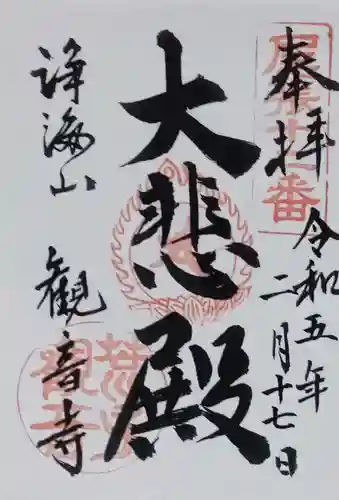 奉拝
令和五年
二月十七日
大悲殿
浄海山
観音寺